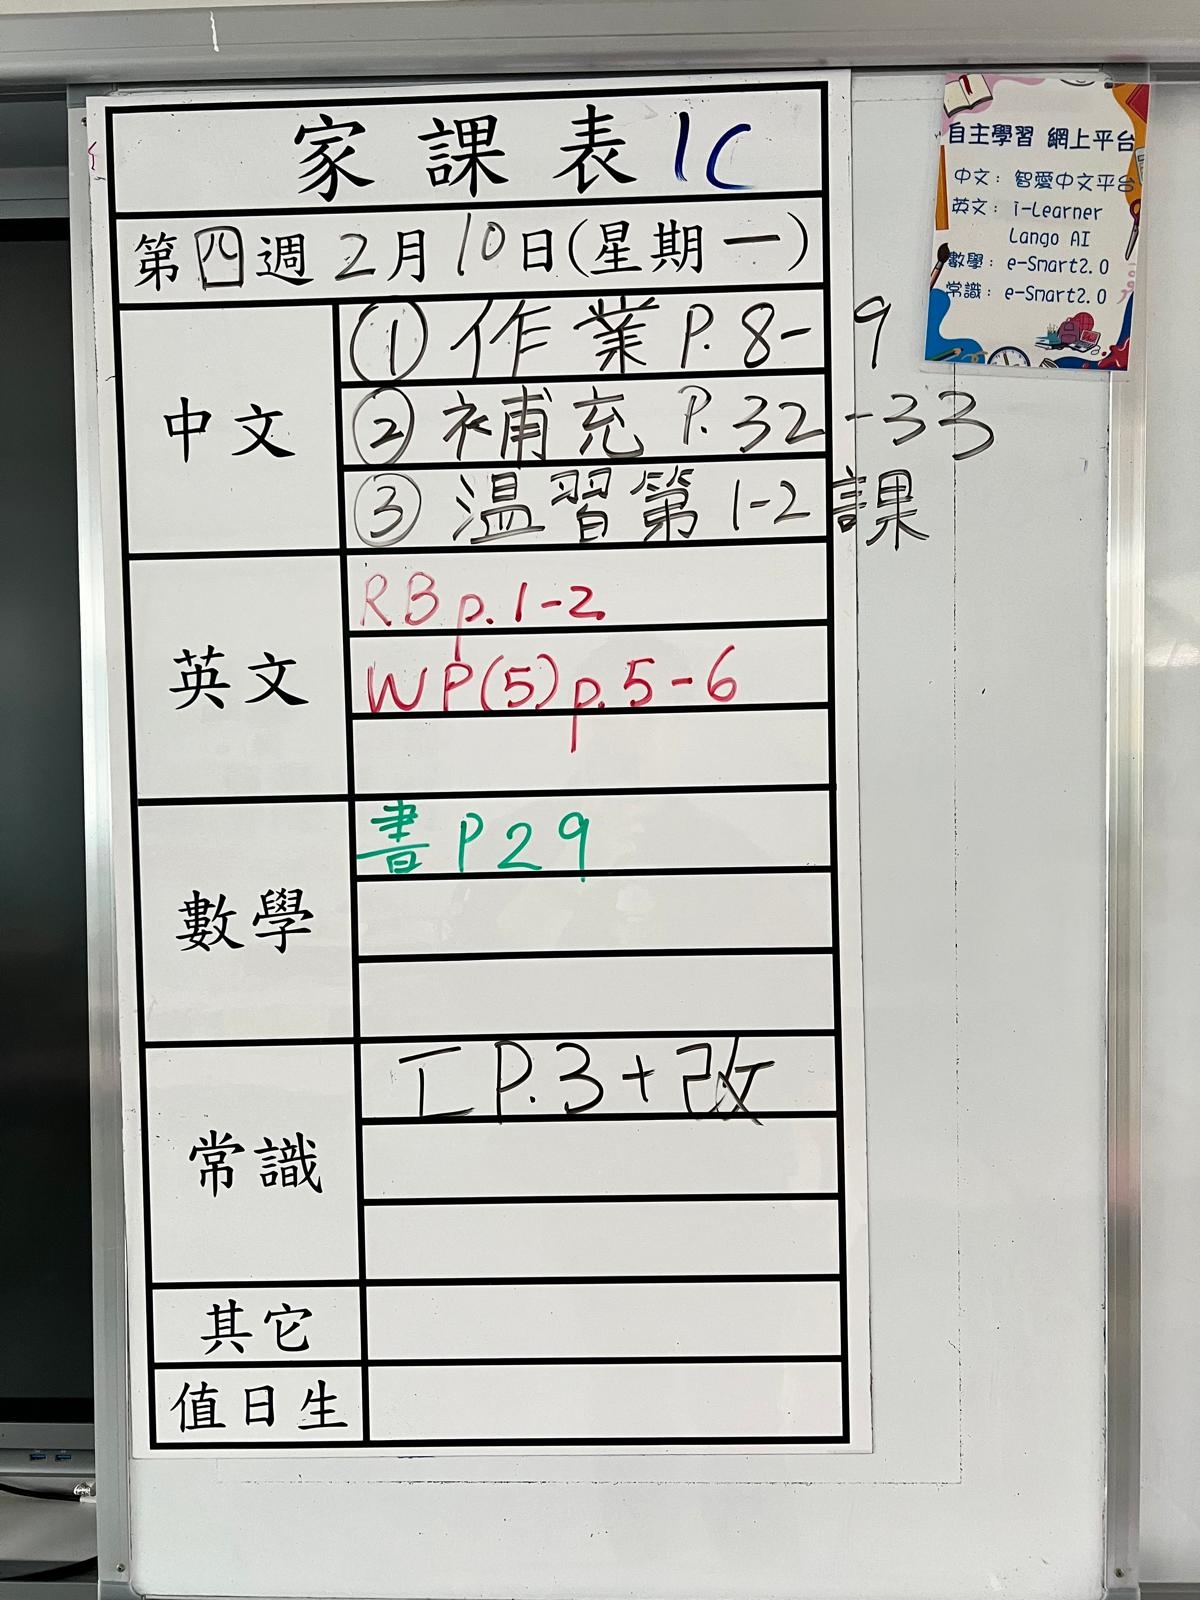 家課表 1C
第四週 2月10日(星期一)
中文
① 作業 P. 8-9
② 補充 P. 32-33
③ 温習第1-2課
英文
RB p. 1-2
WP(5) p. 5-6
數學
書 P29
常識
工 P. 3 + 改
其它
值日生
自主學習 網上平台
中文: 智愛中文平台
英文: i-Learner
Lango AI
數學: e-Smart2.0
常識: e-Smart2.0